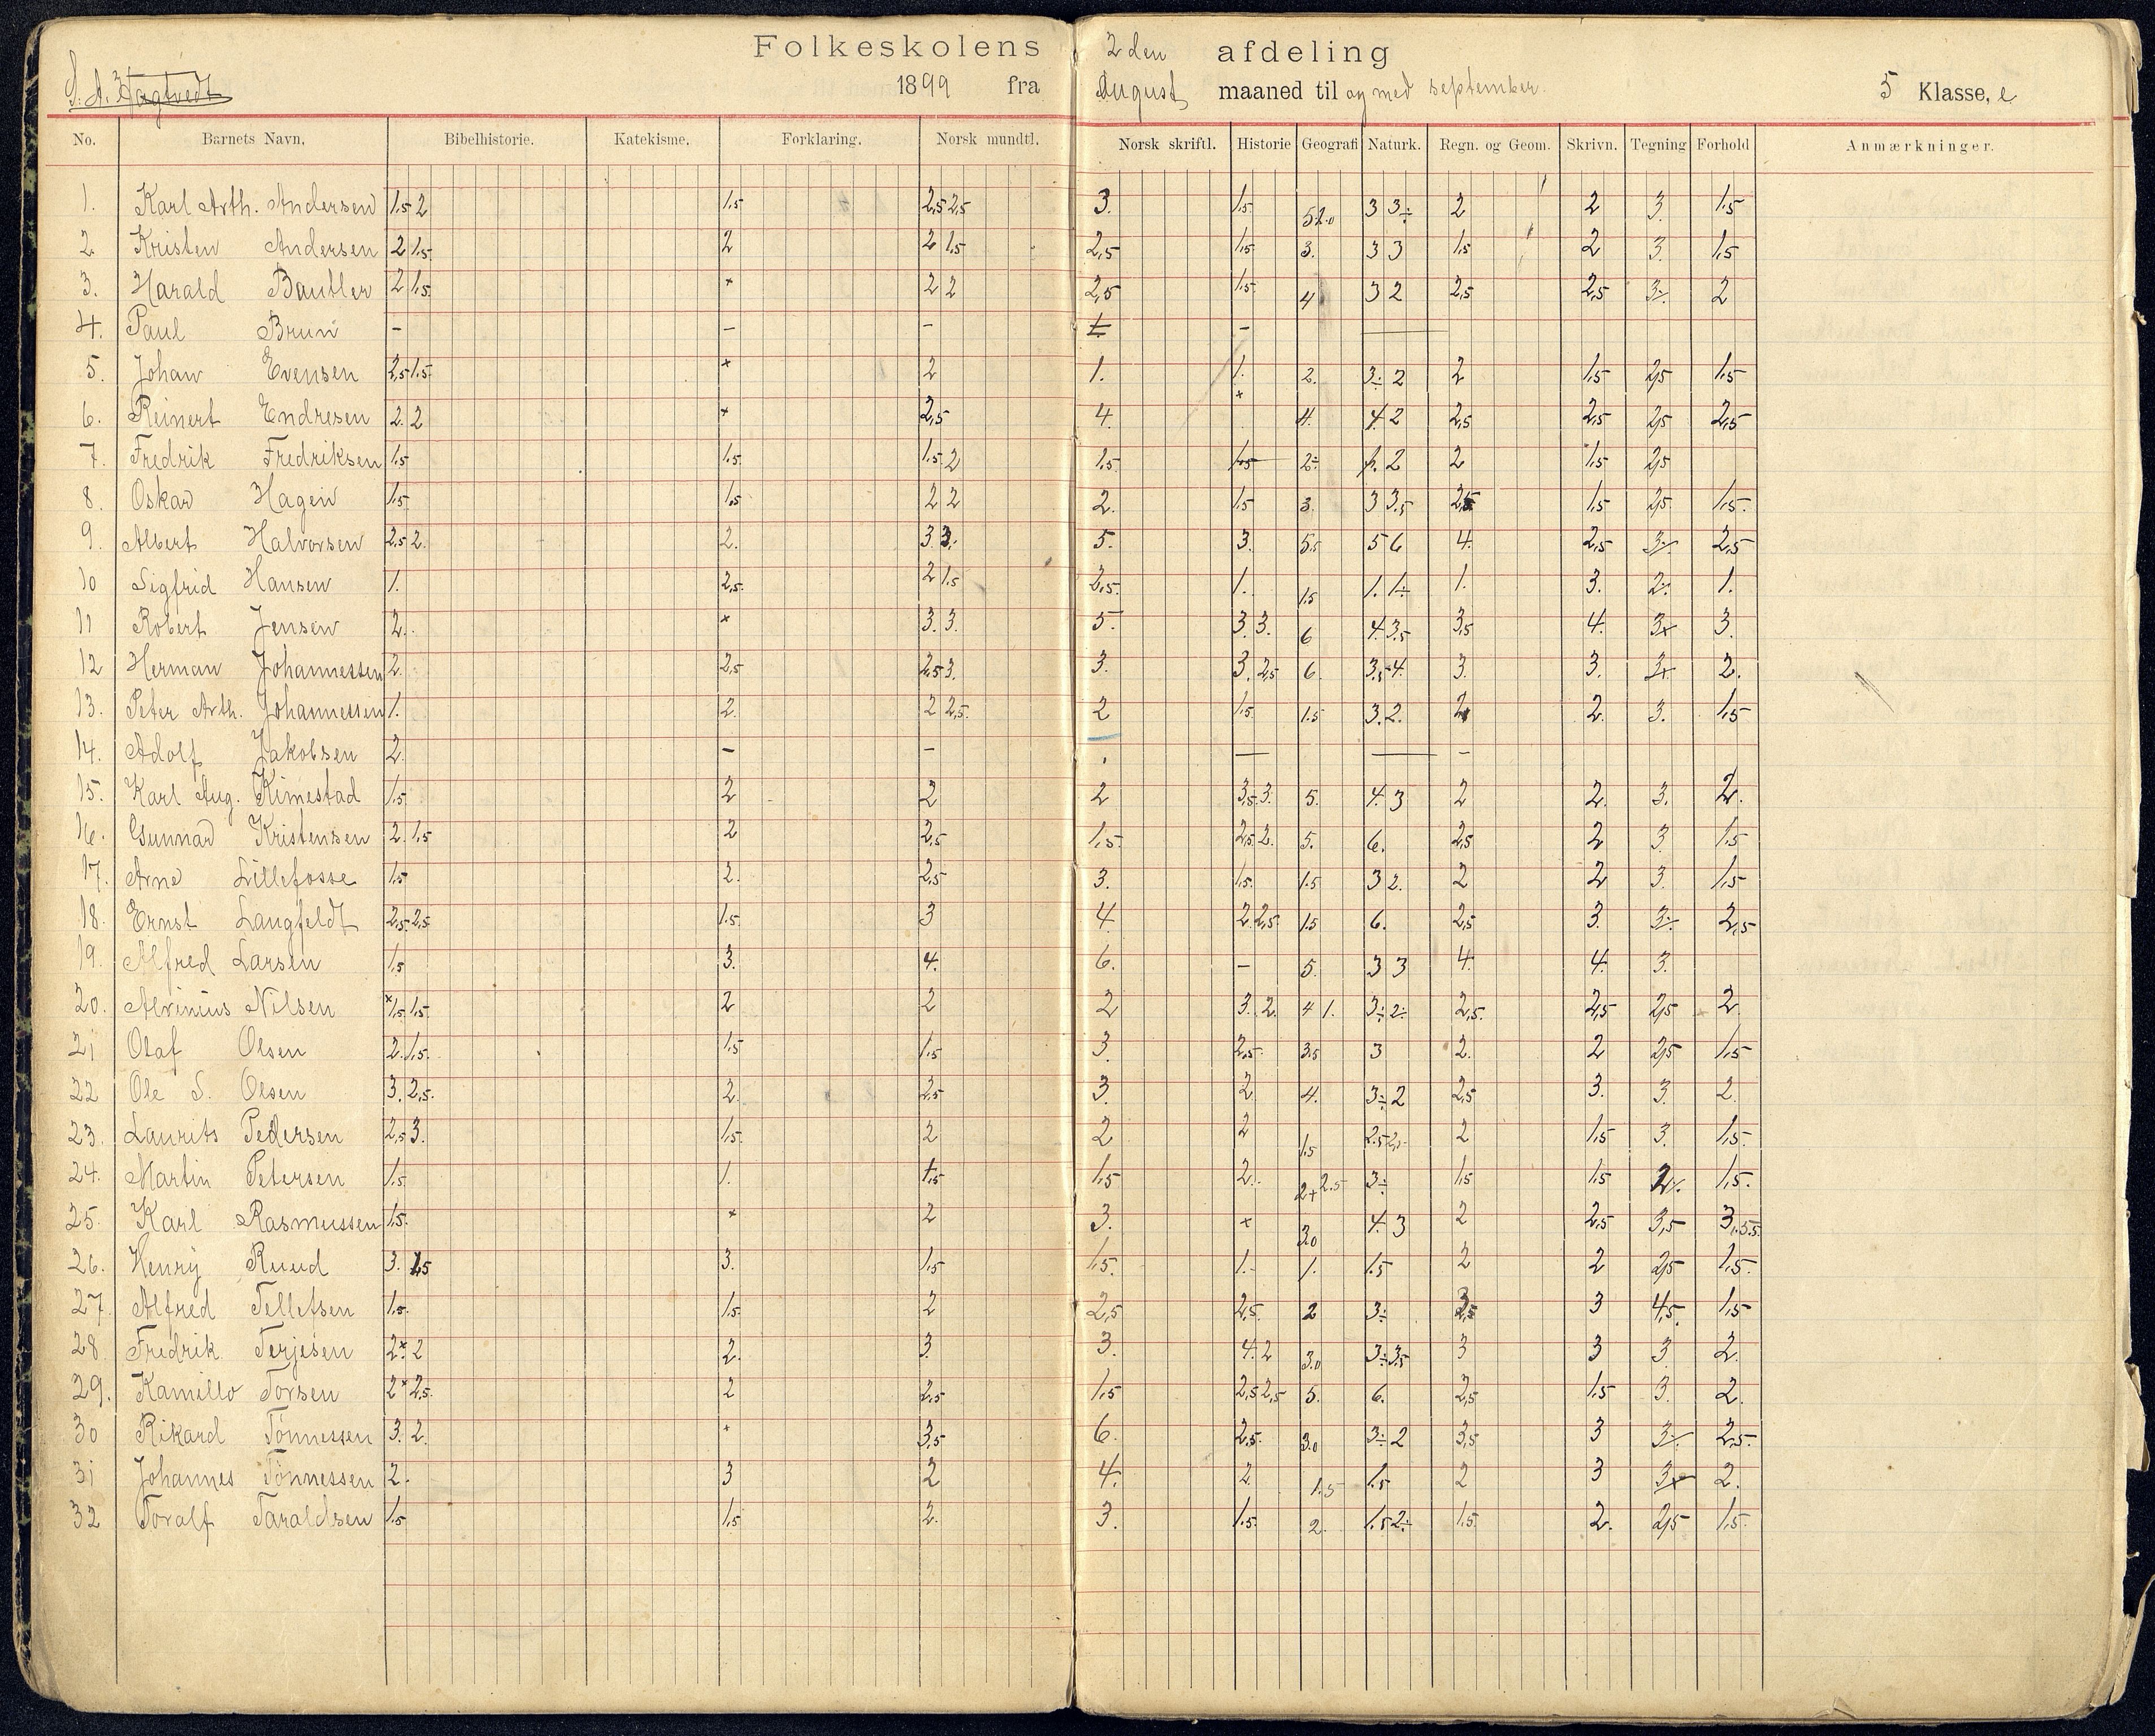 Folkeskolens 2 den afdeling
S. A. Hagtvedt 1899 fra August maaned til og med september. 5 Klasse, e
No. Barnets Navn. Bibelhistorie. Katekisme. Forklaring. Norsk mundtl. Norsk skriftl. Historie Geografi Naturk. Regn. og Geom. Skrivn. Tegning Forhold Anmærkninger.
1. Karl Arth. Andersen 1.5 2 1.5 2,5 2,5 3. 1.5 3 3÷ 2 2 3. 1.5
2 Kristen Andersen 2 1.5 2 2 1.5 2,5 1.5 3. 3 3 1.5 2 3. 1.5
3. Harald Bautler 2 1.5 + 2 2 2,5 1.5 4 3 2 2,5 2,5 3÷ 2
4. Paul Brun - - - -
5. Johan Evensen 2,5 1.5 + 2 1. 1. 2. 3÷ 2 2 1.5 2,5 1.5
6. Reinert Endresen 2. 2 + 2,5 4. + 4. 4 2 2,5 2,5 2,5 2,5
7. Fredrik Fredriksen 1.5 1.5 1.5 2 1.5 1.5 2÷ 2 2 1.5 2,5
8. Oskar Hagen 1.5 1.5 2 2 2. 1.5 3. 3 3.5 2,5 1.5 2,5 1.5
9. Albert Halvorsen 2,5 2. 2. 3 3. 5. 3. 5.5 5 6 4. 2,5 3÷ 2,5
10 Sigfrid Hansen 1. 2,5 2 1.5 2,5 1. 1.5 1. 1÷ 1. 3. 2÷ 1.
11 Robert Jensen 2. + 3. 3. 5. 3. 3. 6 4. 3.5 3,5 4. 3+ 3.
12 Herman Johannessen 2. 2,5 2,5 3. 3. 3. 2,5 6. 3.5 4. 3. 3. 3+ 2.
13. Peter Arth. Johannessen 1. 2. 2 2,5 2 1.5 1.5 3. 2. 2. 3. 1.5
14. Adolf Jakobsen 2. - - - - -
15. Karl Aug. Kimestad 1.5 2 2 2 3,5 3. 5. 4. 3 2 2. 3. 2.
16. Gunnar Kristensen 2. 1.5 2 2,5 1.5 2,5 2. 5. 6. 2,5 2 3 1.5
17. Arne Lillefosse 1.5 2. 2,5 3. 1.5 1.5 3 2. 2 2 3. 1.5
18. Ernst Langfeldt 2,5 2,5 1.5 3 4. 2 2,5 1.5 6. 2,5 3. 3÷ 2,5
19. Alfred Larsen 1.5 3. 4. 6. - 5. 3 3 4. 4. 3.
20. Alvinius Nilsen +1.5 1.5 2 2 2 3. 2. 4 1. 3÷ 2÷ 2,5 2,5 2,5 2.
21 Olaf Olsen 2. 1.5 1.5 1.5 3. 2,5 3.5 3 2. 2 2,5 1.5
22 Ole S. Olsen 3. 2,5 2. 2,5 3. 2 4. 3÷ 2 2,5 3. 3. 2.
23. Laurits Pedersen 2,5 3. 1.5 2 2 2 1.5 2 1.5 3. 1.5
24. Martin Petersen 1.5 1. 1.5 1.5 2. 2+ 2.5 3÷ 1.5 1.5 2÷ 1.5
25. Karl Rasmussen 1.5 + 2 3. + 3.0 4. 3 2 2,5 3,5
26. Henry Ruud 3. 1.5 3. 1.5 1.5 1. 1. 1.5 2 2 2,5 1.5
27. Alfred Tellefsen 1.5 1.5 2 2,5 2,5 2 3÷ 3 4,5 1.5
28 Fredrik Terjesen 2+ 2 2. 3. 3. 4. 2 3.0 3÷ 3.5 3 3 3 2.
29. Kamillo Torsen 2+ 2,5 2 2,5 1.5 2,5 2,5 5. 6. 2,5 1.5 3. 2.
30 Rikard Tönnessen 3. 2. + 3,5 6. 2,5 3.0 3÷ 2 3,5 3 3÷ 2,5
31 Johannes Tönnessen 2. 3 2 4. 2. 1.5 1.5 2 3 3+ 2.
32 Toralf Taraldsen 1.5 1.5 2. 3. 1.5 2. 1.5 2÷ 1.5 2. 2,5 1.5